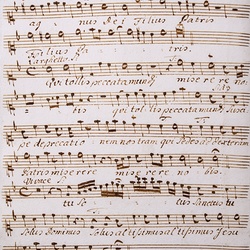 agnus dei filius Patris
filius Patris.
Larghetto
Qui tollis peccata mundi miserere no
tis qui tollis peccata mundi susci
pe deprecationem nostram qui sedes ad dexteram
Patris miserere miserere nobis.
Vivace
tu solus sanctus tu
solus Dominus solus altissimus altissimus Jesu